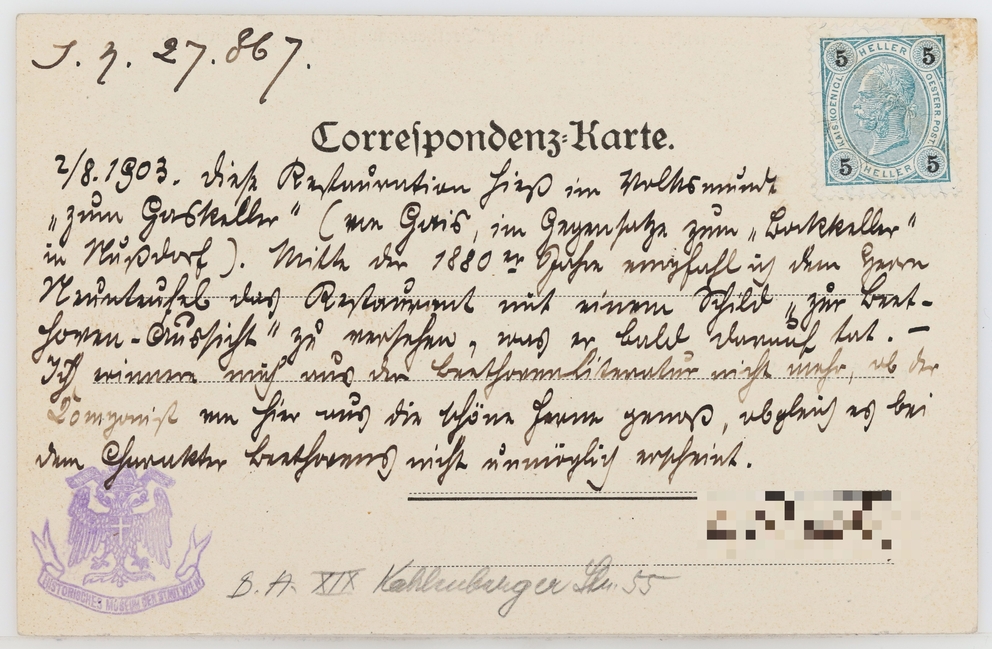 J. N. 27.867.
5 HELLER 5
KAIS. KOENIGL. OESTERR. POST.
5 HELLER 5
Correspondenz-Karte.
2/8. 1903. Diese Restauration hieß im Volksmunde
„zum Gaskeller" (von Gais, im Gegensatze zum „Bockkeller"
in Nußdorf). Mitte der 1880er Jahre empfahl ich dem Herrn
Neunteufel das Restaurant mit einem Schild „zur Beet-
hoven-Aussicht" zu versehen, was er bald darauf tat. –
Ich erinnere mich aus der Beethovenliteratur nicht mehr, ob der
Componist von hier aus die schöne Ferne genoß, obgleich es bei
dem Charakter Beethovens nicht unmöglich erscheint.
HISTORISCHES MUSEUM DER STADT WIEN
B. A. XIX Kahlenberger Str. 55